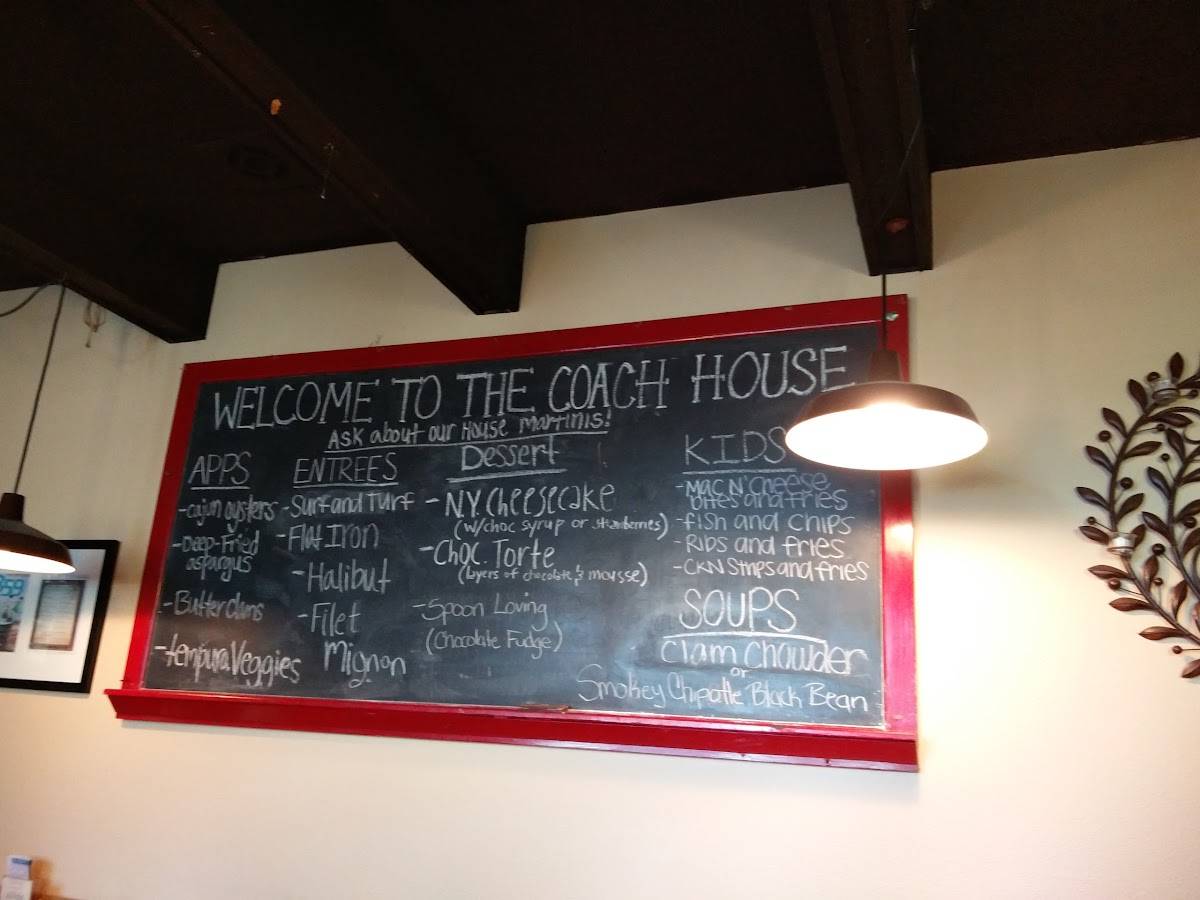 WELCOME TO THE COACH HOUSE
ASK about our House martinis!
APPS
-cajun oysters
-Deep-Fried
asparagus
-Butter clams
-tempura Veggies
ENTREES
-Surf and Turf
-Flat Iron
-Halibut
-Filet
Mignon
Dessert
-N.Y. Cheesecake
(w/choc syrup or strawberries)
-Choc. Torte
(layers of chocolate & mousse)
-Spoon Loving
(Chocolate Fudge)
KIDS
-Mac N' Cheese
bites and fries
-fish and chips
-Ribs and fries
-CKN Strips and fries
SOUPS
Clam Chowder
or
Smokey Chipotle Black Bean